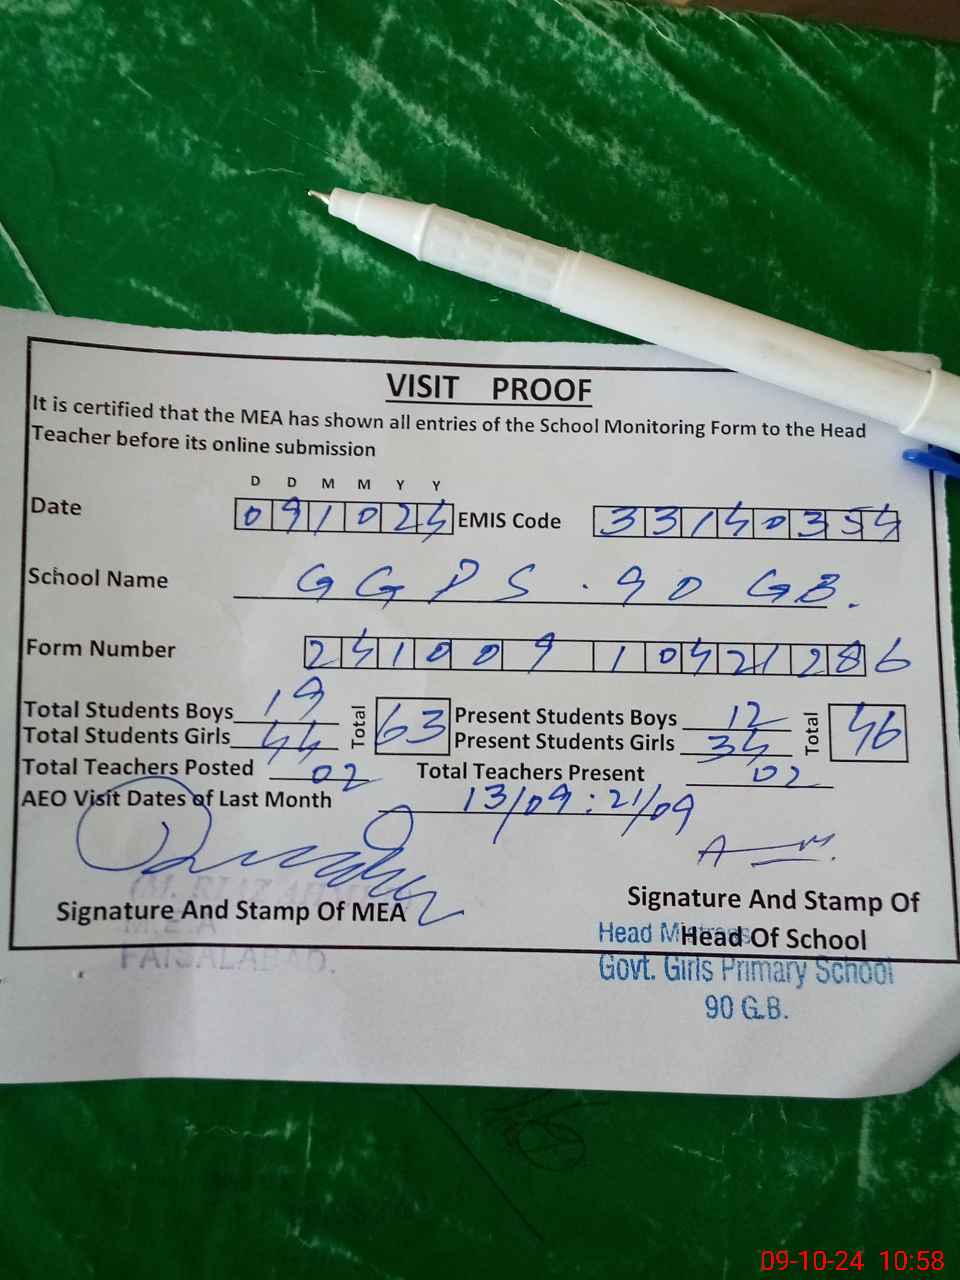 VISIT PROOF
It is certified that the MEA has shown all entries of the School Monitoring Form to the Head
Teacher before its online submission
D D M M Y Y
Date 091024 EMIS Code 33140354
School Name GGPS. 90 GB.
Form Number 241009 10421286
Total Students Boys 19 Total 63 Present Students Boys 12 Total 46
Total Students Girls 44 Present Students Girls 34
Total Teachers Posted 02 Total Teachers Present 02
AEO Visit Dates of Last Month 13/09 : 21/09
Signature And Stamp Of MEA
M.E.A
FAISALABAD.
Signature And Stamp Of
Head Of School
Head Mistress
Govt. Girls Primary School
90 G.B.
09-10-24 10:58